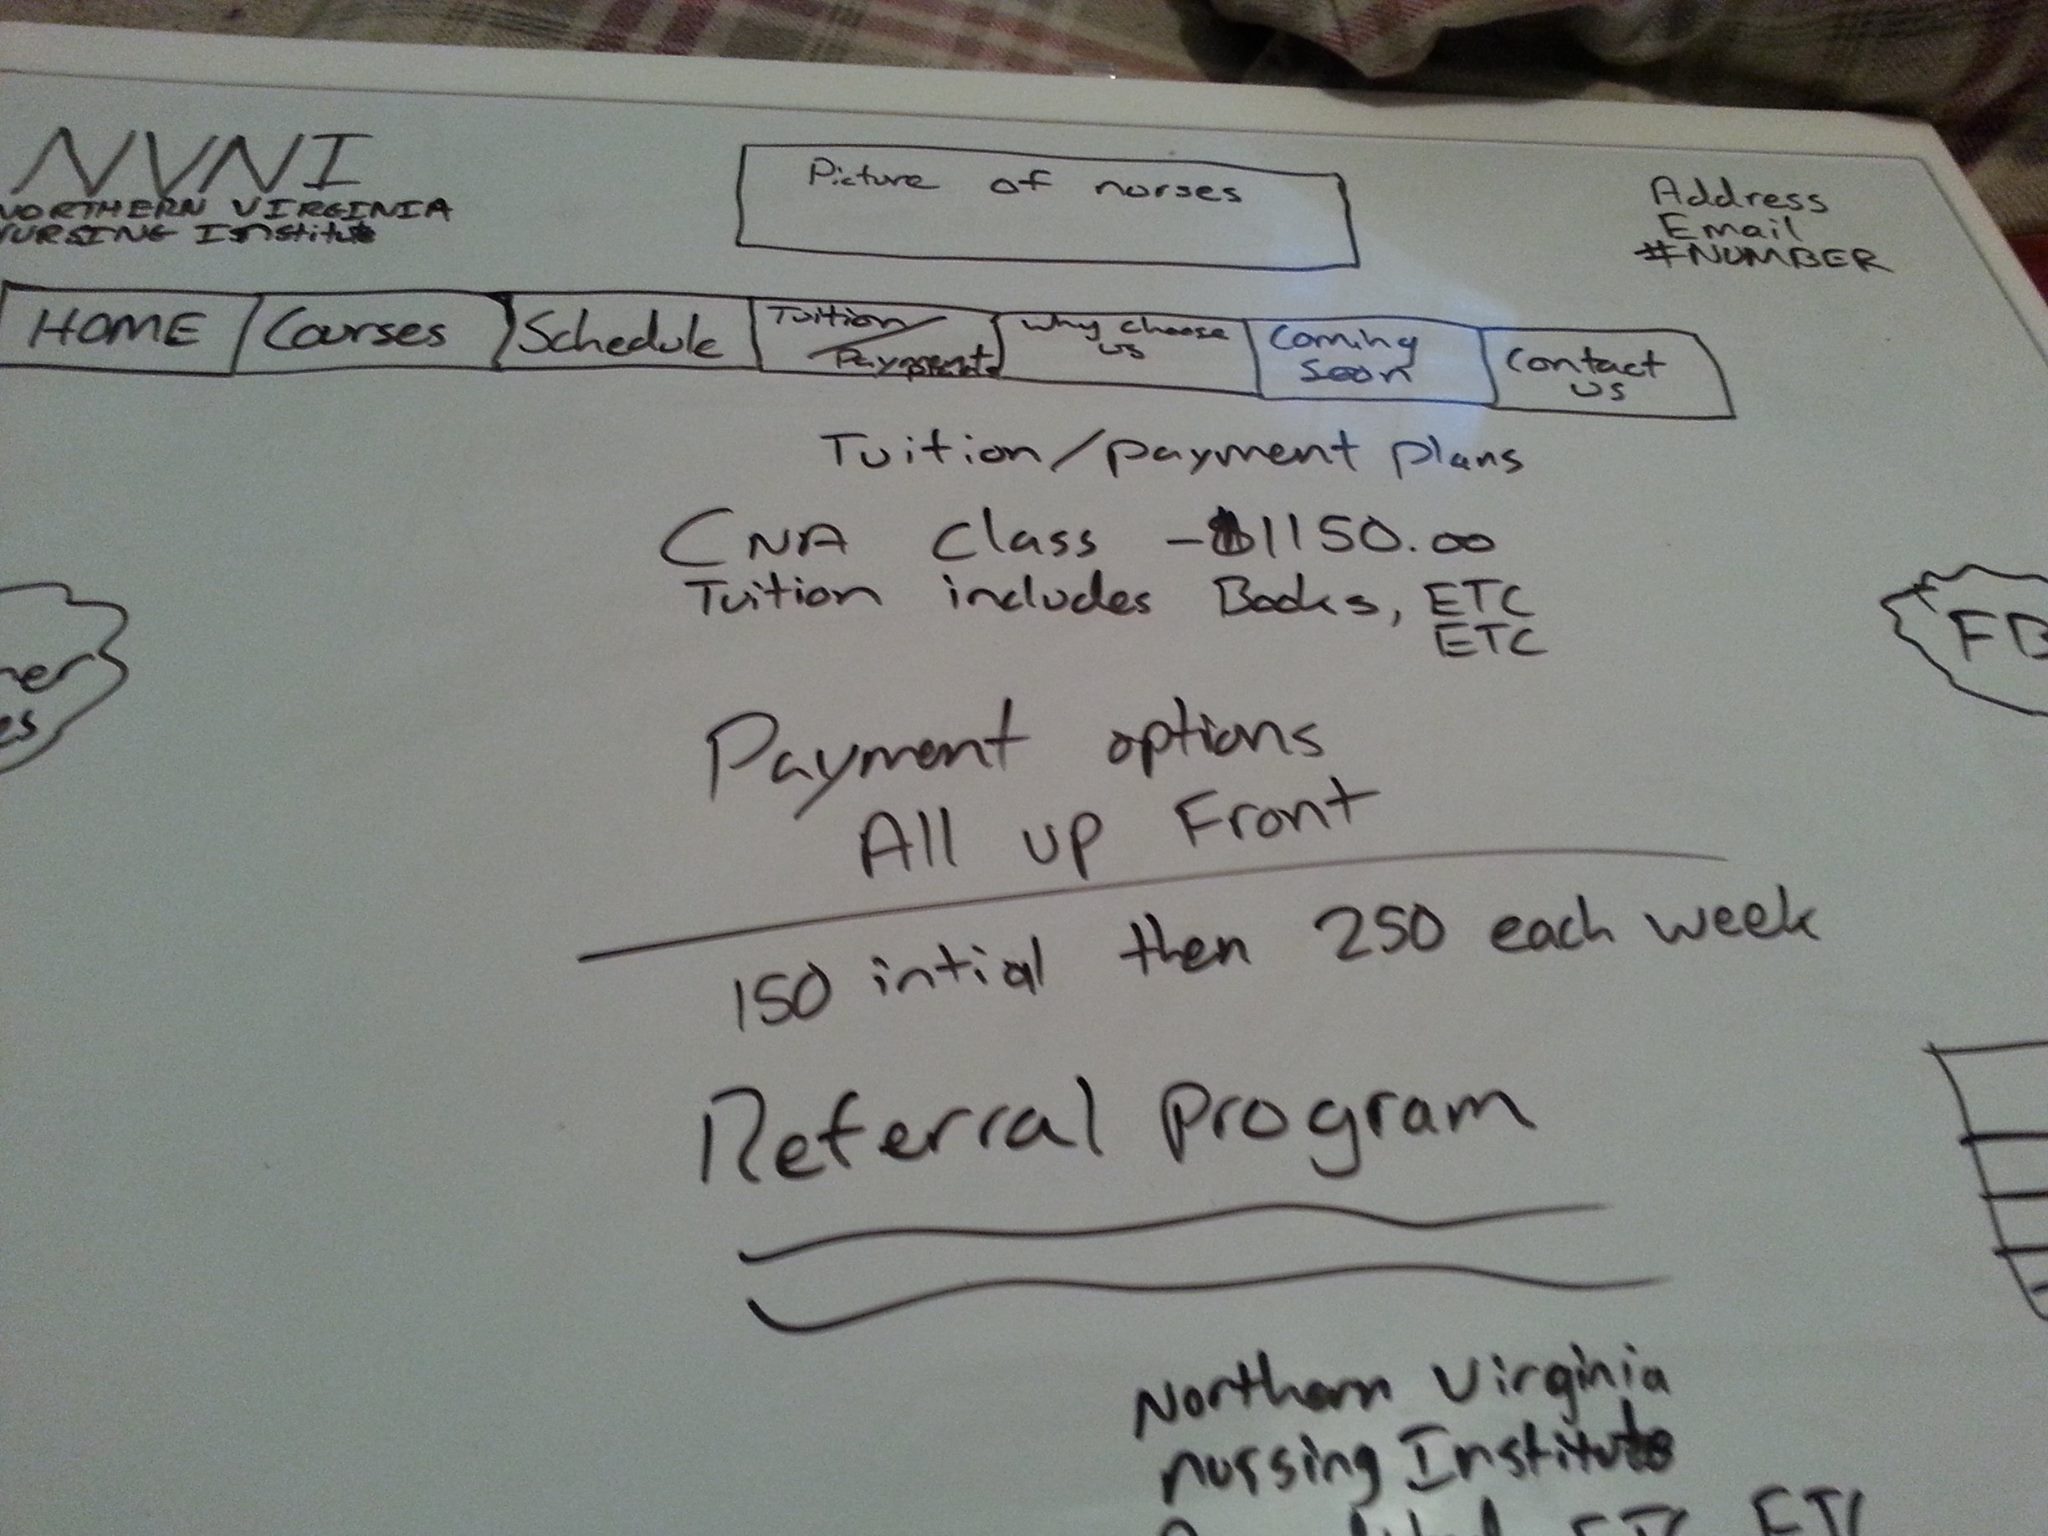 NVNI
NORTHERN VIRGINIA
NURSING Institute
Picture of nurses
Address
Email
#NUMBER
HOME
Courses
Schedule
Tuition/
Payment
Why choose
us
Coming
Soon
Contact
us
Tuition/payment plans
CNA Class - $1150.00
Tuition includes Books, ETC
ETC
FB
Payment options
All up Front
150 intial then 250 each week
Referral program
Northern Virginia
nursing Institute
ETC ETC